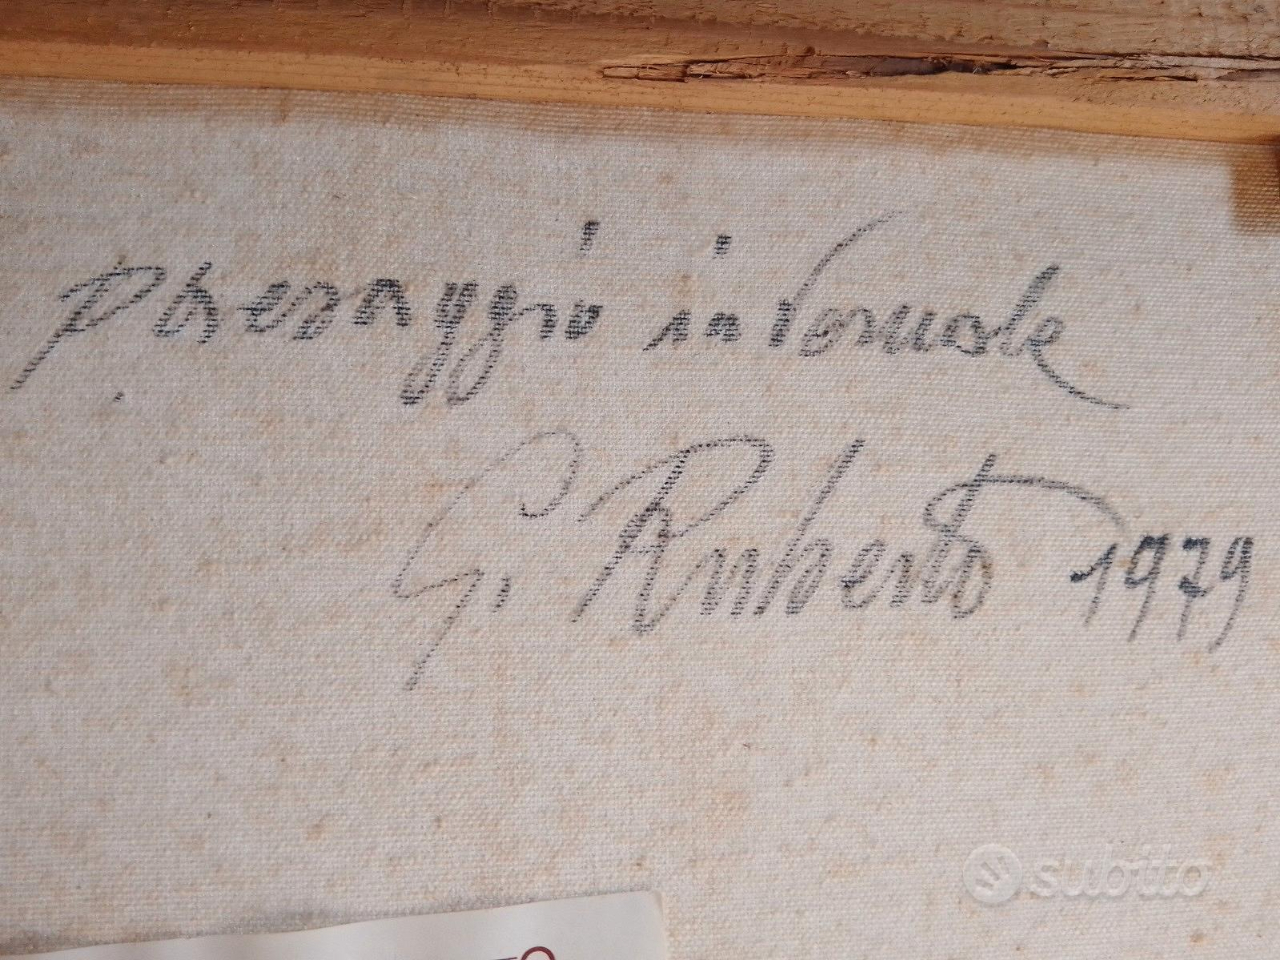 paesaggio invernale
G. Ruberto 1979
subito